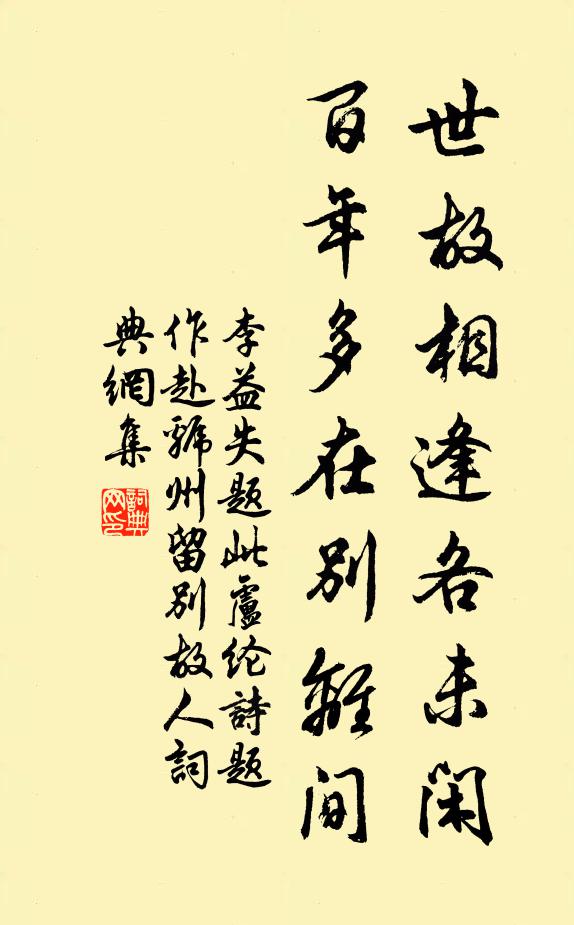 世故相逢各未闲
百年多在别離间
李益失题此盧纶詩题
作赴虢州留别故人詞
典網集
詞典
网印